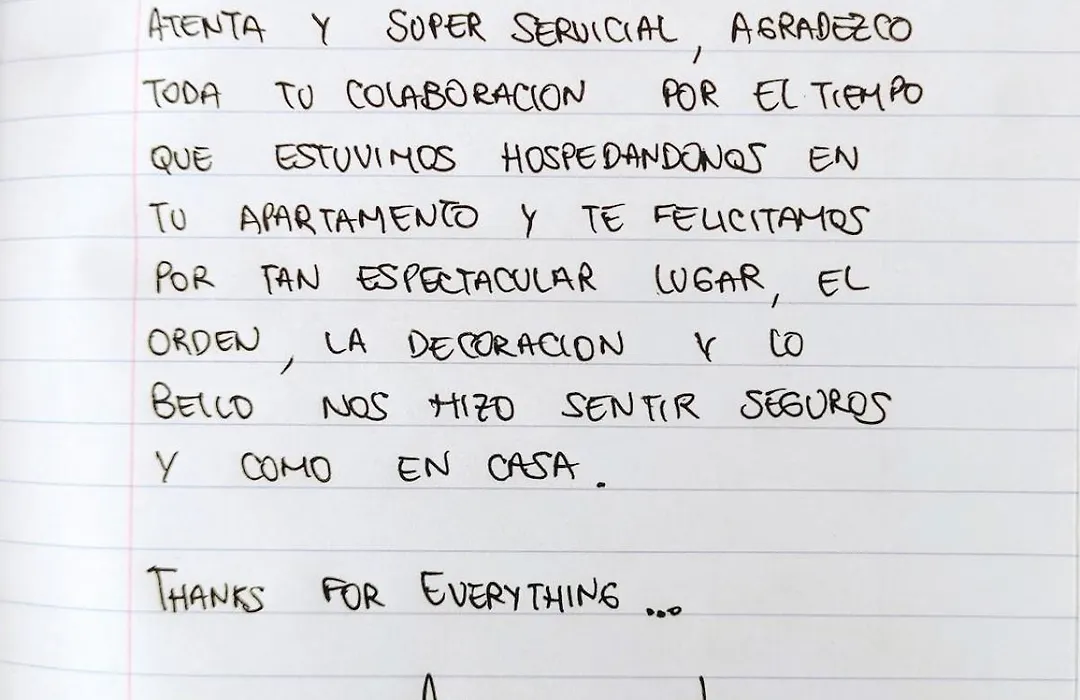 ATENTA Y SUPER SERVICIAL, AGRADEZCO
TODA TU COLABORACION POR EL TIEMPO
QUE ESTUVIMOS HOSPEDANDONOS EN
TU APARTAMENTO Y TE FELICITAMOS
POR TAN ESPECTACULAR LUGAR, EL
ORDEN, LA DECORACION Y LO
BELLO NOS HIZO SENTIR SEGUROS
Y COMO EN CASA.
THANKS FOR EVERYTHING...